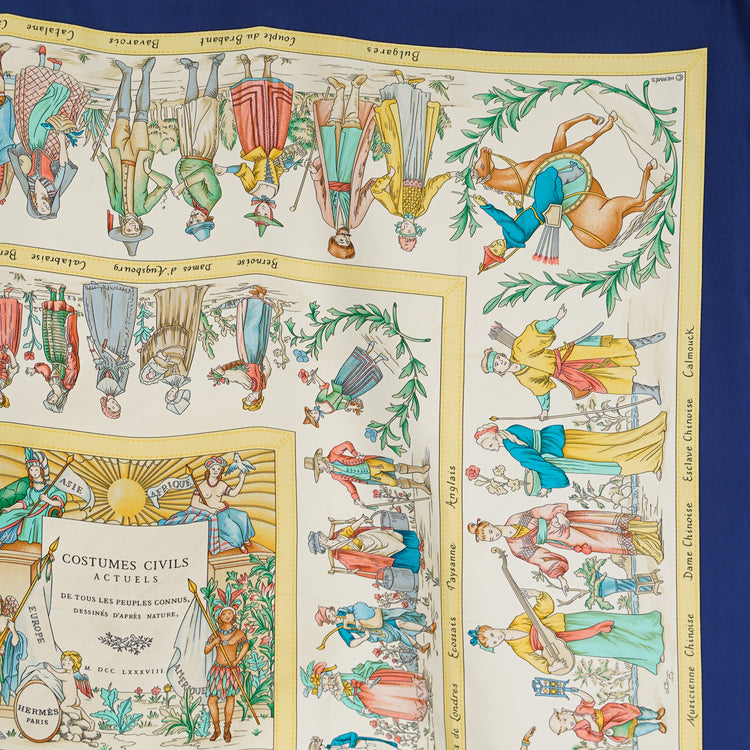 Catalane
Bavarois
Couple du Brabant
Bulgares
© HERMÈS
Calabraise
Dames d'Augsbourg
Bernoise
ASIE
AFRIQUE
COSTUMES CIVILS
ACTUELS
DE TOUS LES PEUPLES CONNUS,
DESSINÉS D'APRÈS NATURE,
M. DCC. LXXXVIII
EUROPE
AMERIQUE
HERMÈS
PARIS
de Londres
Ecossais
Paysanne
Anglais
Musicienne Chinoise
Dame Chinoise
Esclave Chinoise
Calmouck